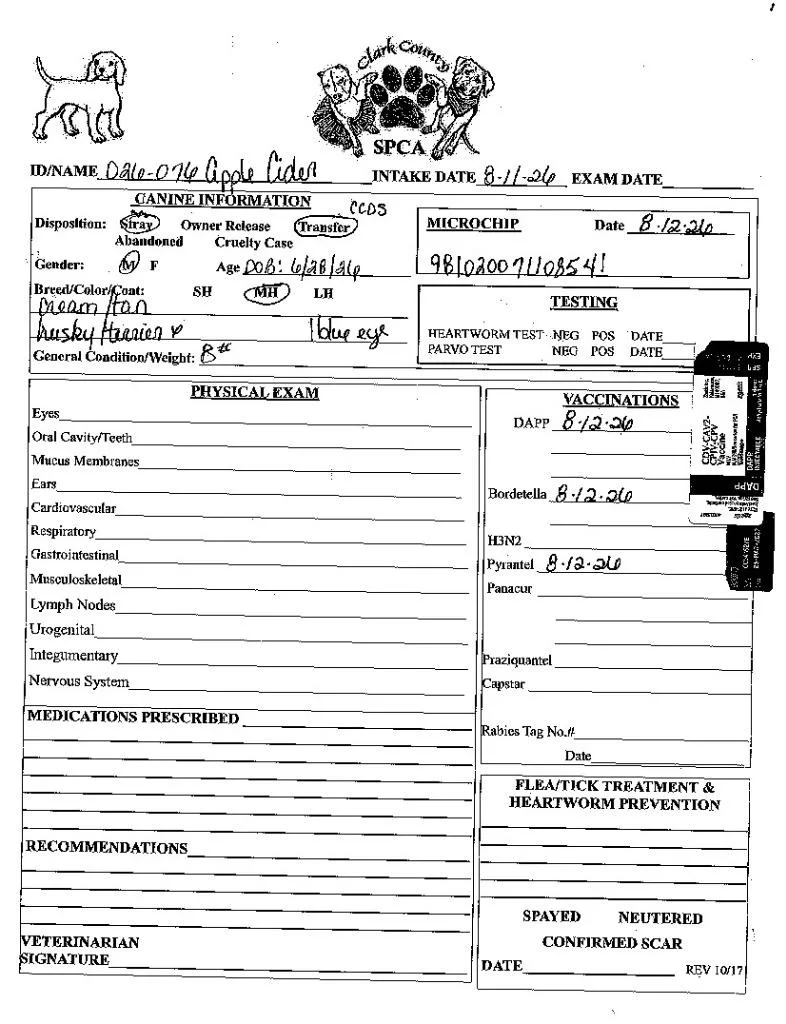 Clark County
SPCA
ID/NAME D26-076 Apple Cider INTAKE DATE 8-11-26 EXAM DATE
CANINE INFORMATION
CCDS
Disposition: Stray Owner Release Transfer
Abandoned Cruelty Case
Gender: M F Age DOB: 6/28/26
Breed/Color/Coat: SH MH LH
Cream/tan
husky/terrier 1 blue eye
General Condition/Weight: 8#
MICROCHIP Date 8-12-26
981020071108541
TESTING
HEARTWORM TEST NEG POS DATE
PARVO TEST NEG POS DATE
PHYSICAL EXAM
Eyes
Oral Cavity/Teeth
Mucus Membranes
Ears
Cardiovascular
Respiratory
Gastrointestinal
Musculoskeletal
Lymph Nodes
Urogenital
Integumentary
Nervous System
MEDICATIONS PRESCRIBED
RECOMMENDATIONS
VETERINARIAN
SIGNATURE
VACCINATIONS
DAPP 8-12-26
Bordetella 8-12-26
H3N2
Pyrantel 8-12-26
Panacur
Praziquantel
Capstar
Rabies Tag No.#
Date
CDV-CAV2-
CPIV-CPV
Vaccine
DAPP
FLEA/TICK TREATMENT &
HEARTWORM PREVENTION
SPAYED NEUTERED
CONFIRMED SCAR
DATE
REV 10/17